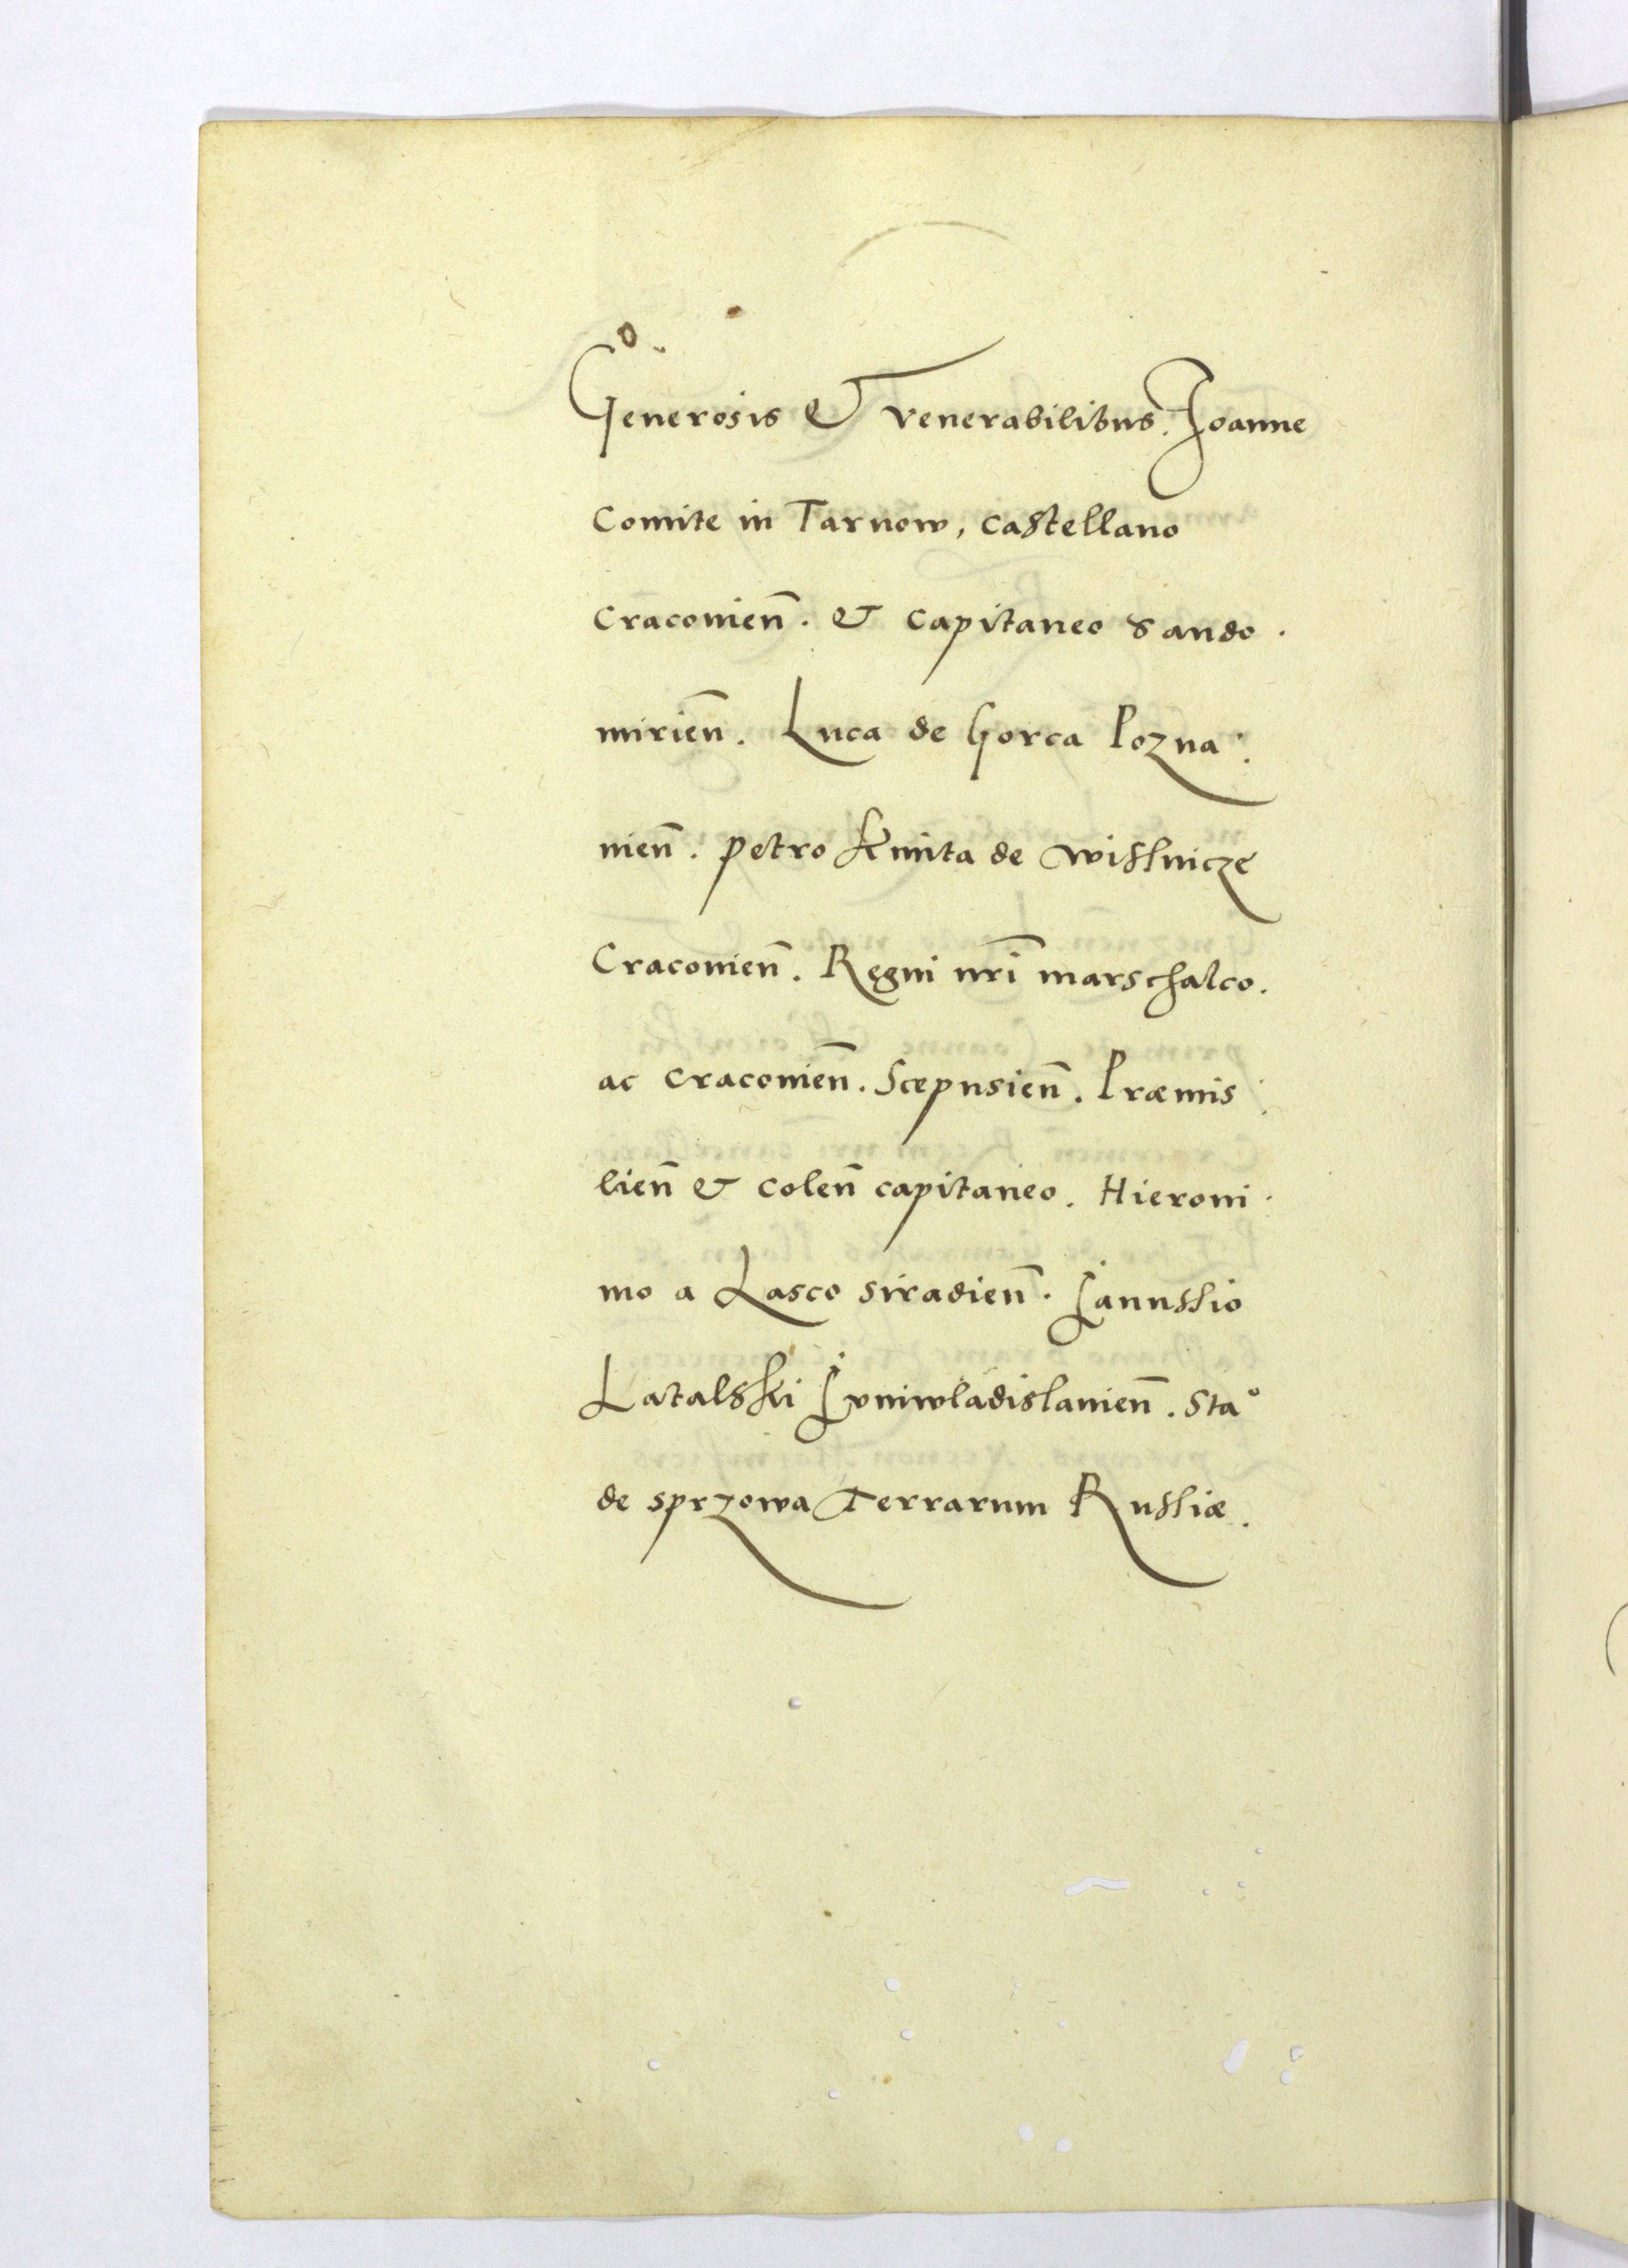 Generosis & venerabilibus. Joanne
Comite in Tarnow, castellano
Cracouien̄. & capitaneo Sando.
mirien̄. Luca de Gorca Pozna:
nien̄. petro Kmita de wisslnicze
Cracouien̄. Regni nr̄i marschalco.
ac cracouien̄. Scepusien̄. Præmis:
lien̄ & colen̄ capitaneo. Hieroni.
mo a Lasco siradien̄. Ianussio
Latalski Iuniwladislauien̄. Sta°
de sprzowa Terrarum Russiæ.